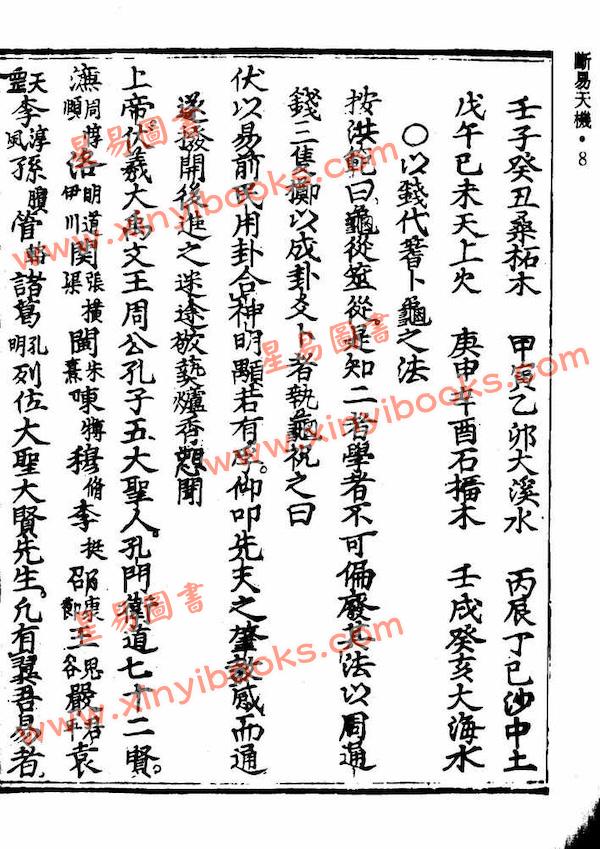 斷易天機・8
壬子癸丑桑柘木 甲寅乙卯大溪水 丙辰丁巳沙中土
戊午己未天上火 庚申辛酉石榴木 壬戌癸亥大海水
○以錢代蓍卜龜之法
按洪範曰龜從筮從是知二者學者不可偏廢其法以周通
錢三隻擲以成卦爻卜者執龜祝之曰
伏以易前民用卦合神明顒若有孚仰叩先天之肇啟感而通
遂撥開後進之迷途敬爇爐香恕聞
上帝伏羲大禹文王周公孔子五大聖人孔門衛道七十二賢
濂周惇頤洛明道伊川関張橫渠閩朱熹陳摶穆脩李挺邵康節王思谷嚴君平袁
天罡李淳風孫臏管輅諸葛孔明列位大聖大賢先生凡有翼吾易者
星易圖書
www.xinyibooks.com
星易圖書
www.xinyibooks.com
星易圖書
www.xinyibooks.com